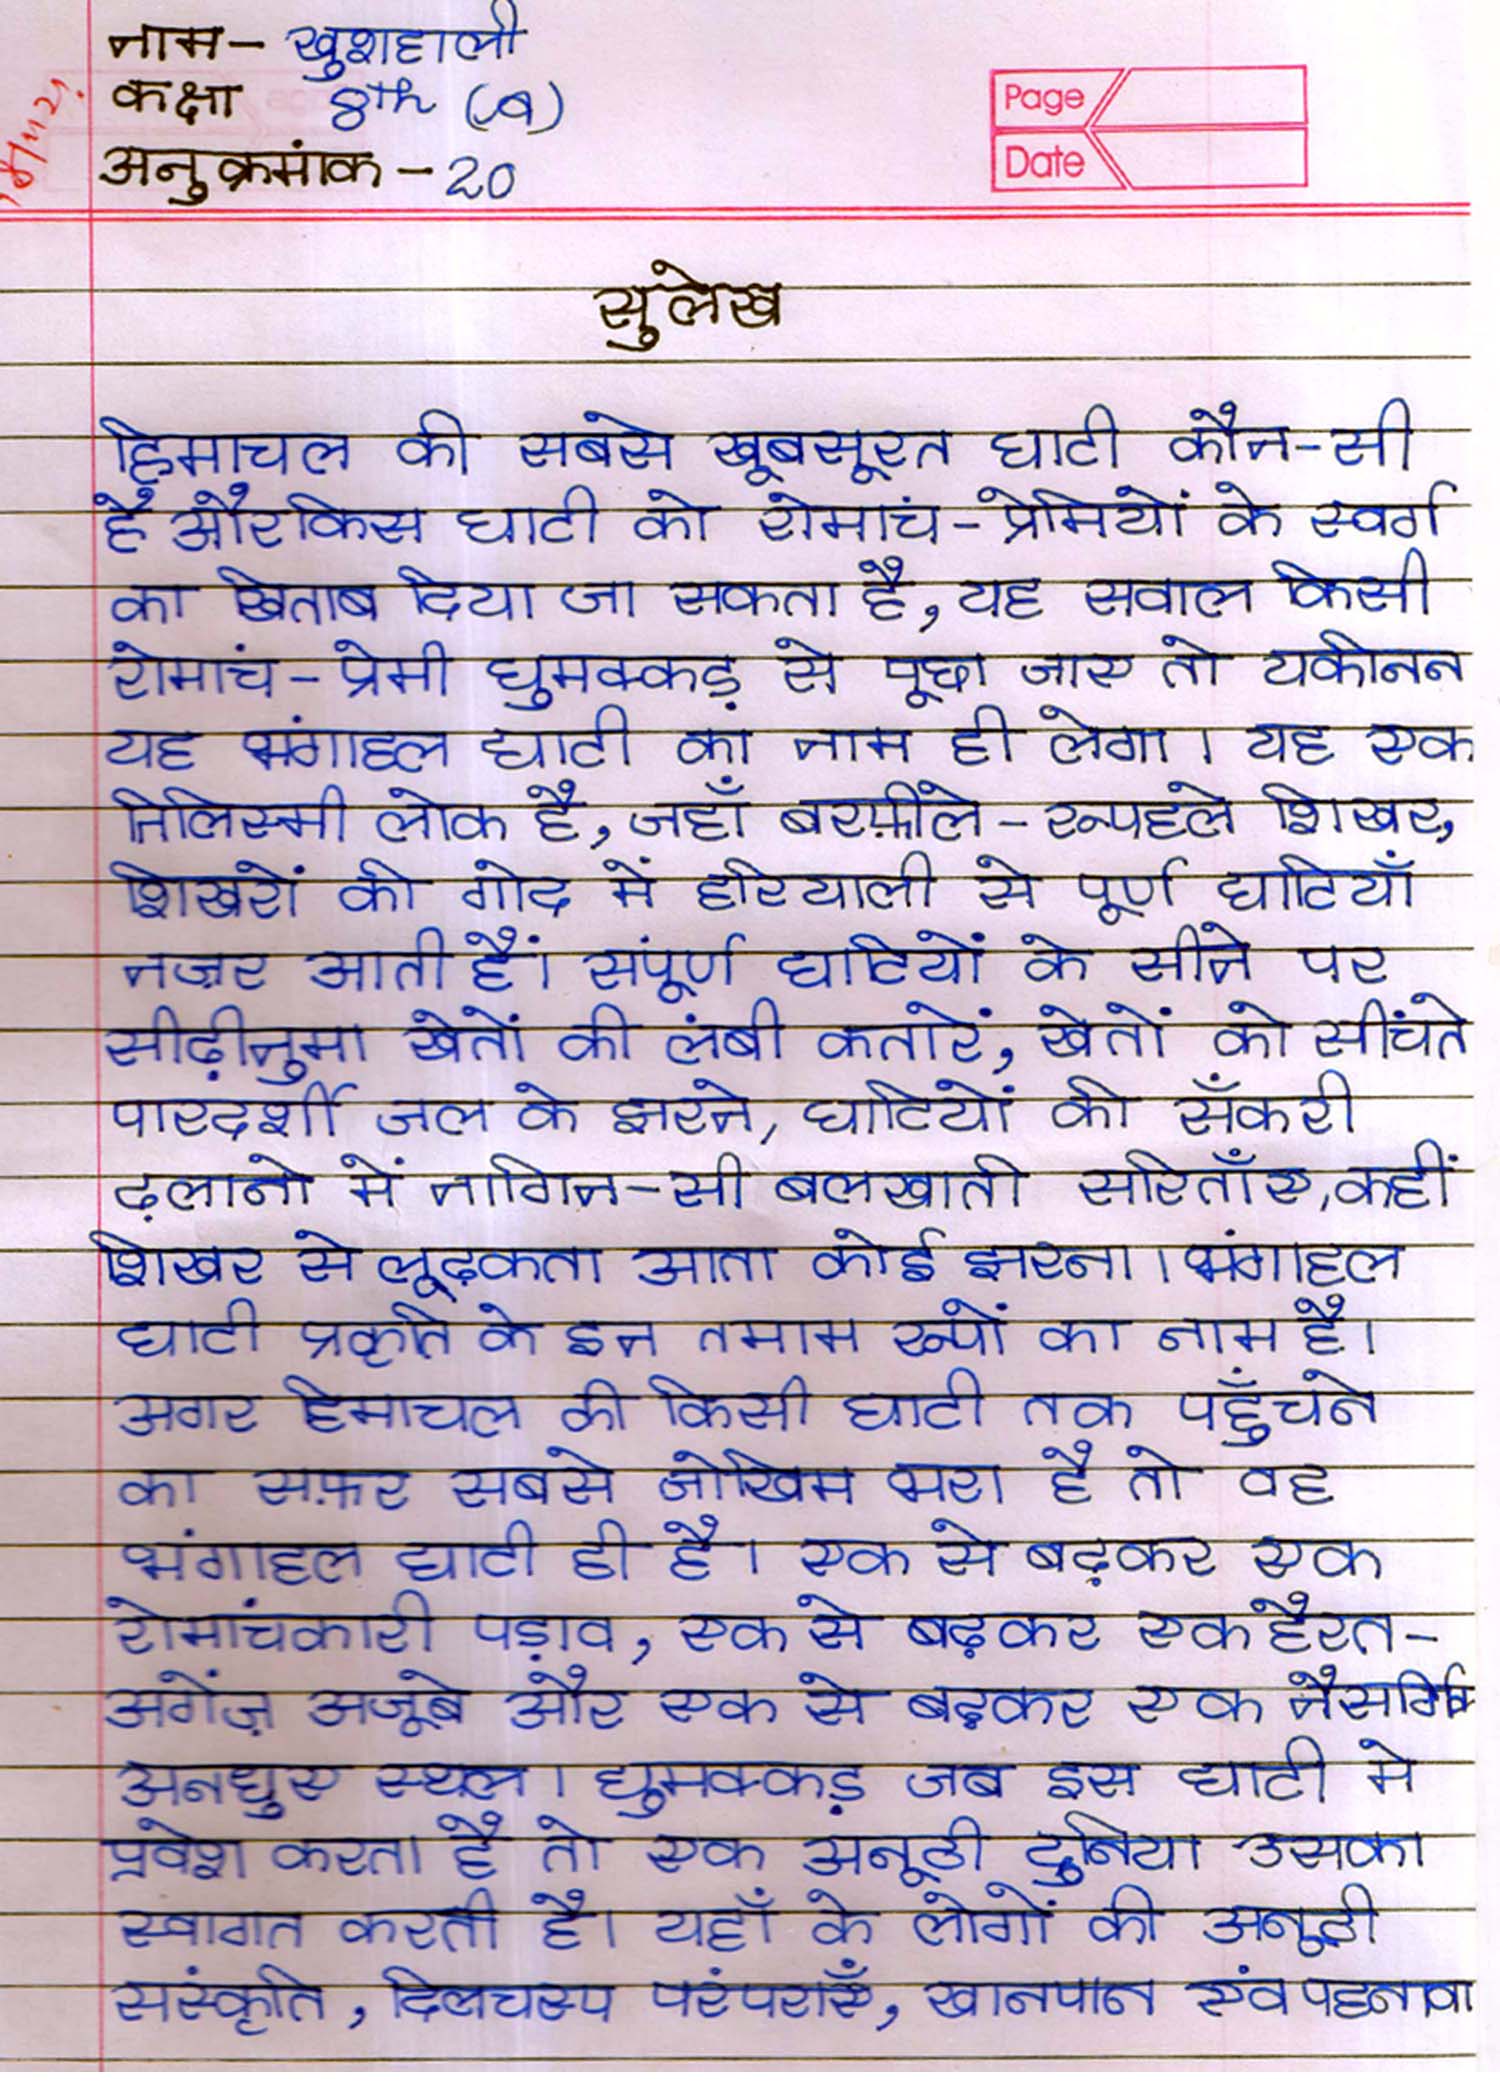 नाम- खुशहाली
कक्षा 8th (ब)
अनुक्रमांक - 20
Page
Date
सुलेख
हिमाचल की सबसे खूबसूरत घाटी कौन-सी
है और किस घाटी को रोमाचं-प्रेमियों के स्वर्ग
का खिताब दिया जा सकता है, यह सवाल किसी
रोमाचं-प्रेमी घुमक्कड़ से पूछा जाए तो यकीनन
यह भंगाहल घाटी का नाम ही लेगा। यह एक
तिलिस्मी लोक है, जहाँ बरफ़ीले-रूपहले शिखर,
शिखरों की गोद में हरियाली से पूर्ण घाटियाँ
नज़र आती हैं। संपूर्ण घाटियों के सीने पर
सीढ़ीनुमा खेतों की लंबी कतारें, खेतों को सीचंते
पारदर्शी जल के झरने, घाटियों की सँकरी
ढ़लानो में नागिन-सी बलखाती सरिताँए, कहीं
शिखर से लूढ़कता आता कोई झरना। भंगाहल
घाटी प्रकृति के इन तमाम रूपों का नाम है।
अगर हिमाचल की किसी घाटी तक पहुँचने
का सफ़र सबसे जोखिम भरा है तो वह
भंगाहल घाटी ही है। एक से बढ़कर एक
रोमांचकारी पड़ाव, एक से बढ़कर एक हैरत-
अगेंज़ अजूबे और एक से बढ़कर एक नैसर्गिक
अनछुए स्थल। घुमक्कड़ जब इस घाटी मे
प्रवेश करता है तो एक अनूठी दुनिया उसका
स्वागत करती है। यहाँ के लोगों की अनूठी
संस्कृति, दिलचस्प परंपराएँ, खानपान एंव पहनावा